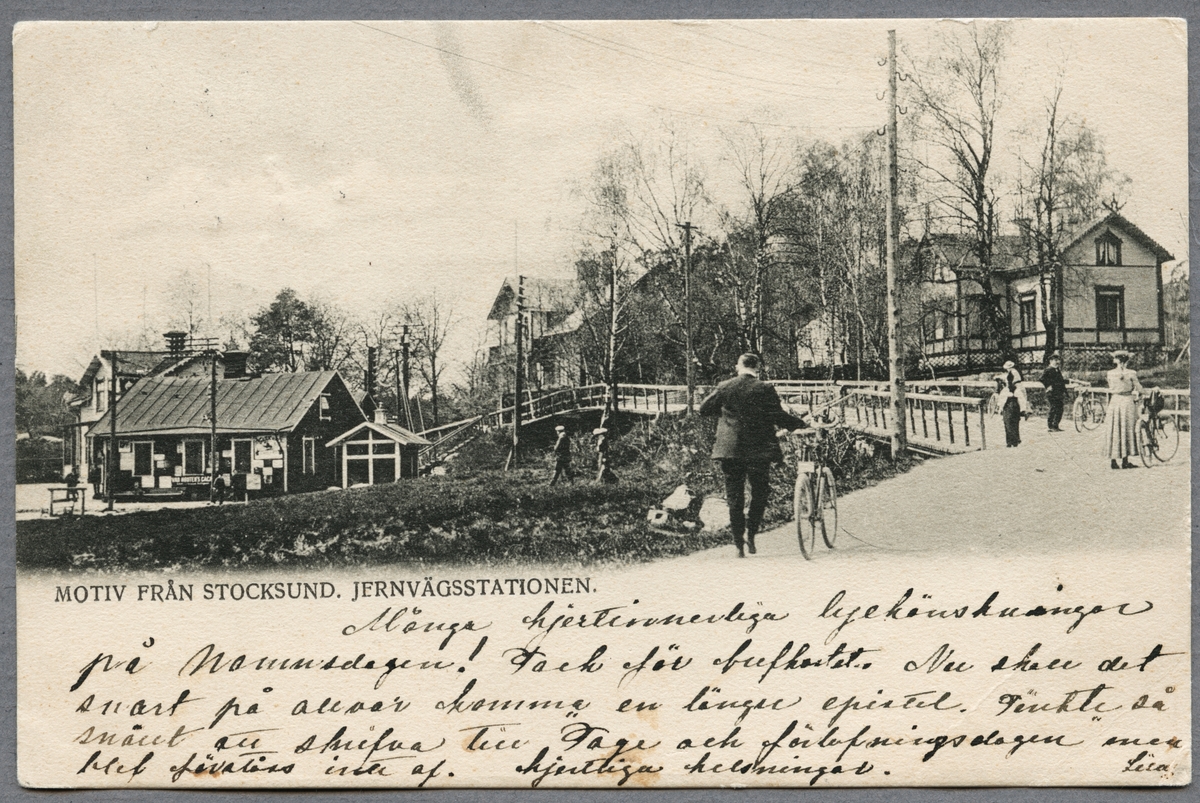 VAN HOUTEN'S CACAO
MOTIV FRÅN STOCKSUND. JERNVÄGSSTATIONEN.
Många hjertinnerliga lyckönskningar
på Namnsdagen! Tack för brefkortet. Nu skall det
snart på allvar komma en längre epistel. Tänkte så
smått att skrifva till "Tage och förlofningsdagen" men
blef förstås inte af. Hjertliga helsningar.